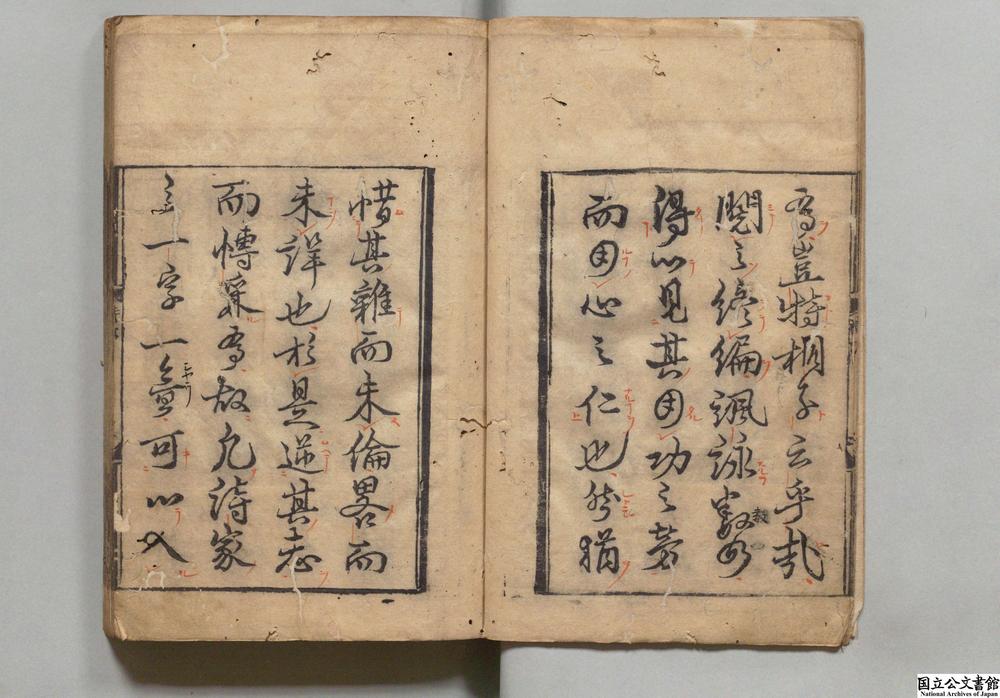 焉豈特相予云乎哉
閲之終編諷詠數四
得以見其用功之者
而用心之仁也然猶
惜其雜而未倫畧而
未詳也於是逆其志
而博采焉故凡詩家
一字一意可以入
国立公文書館
National Archives of Japan